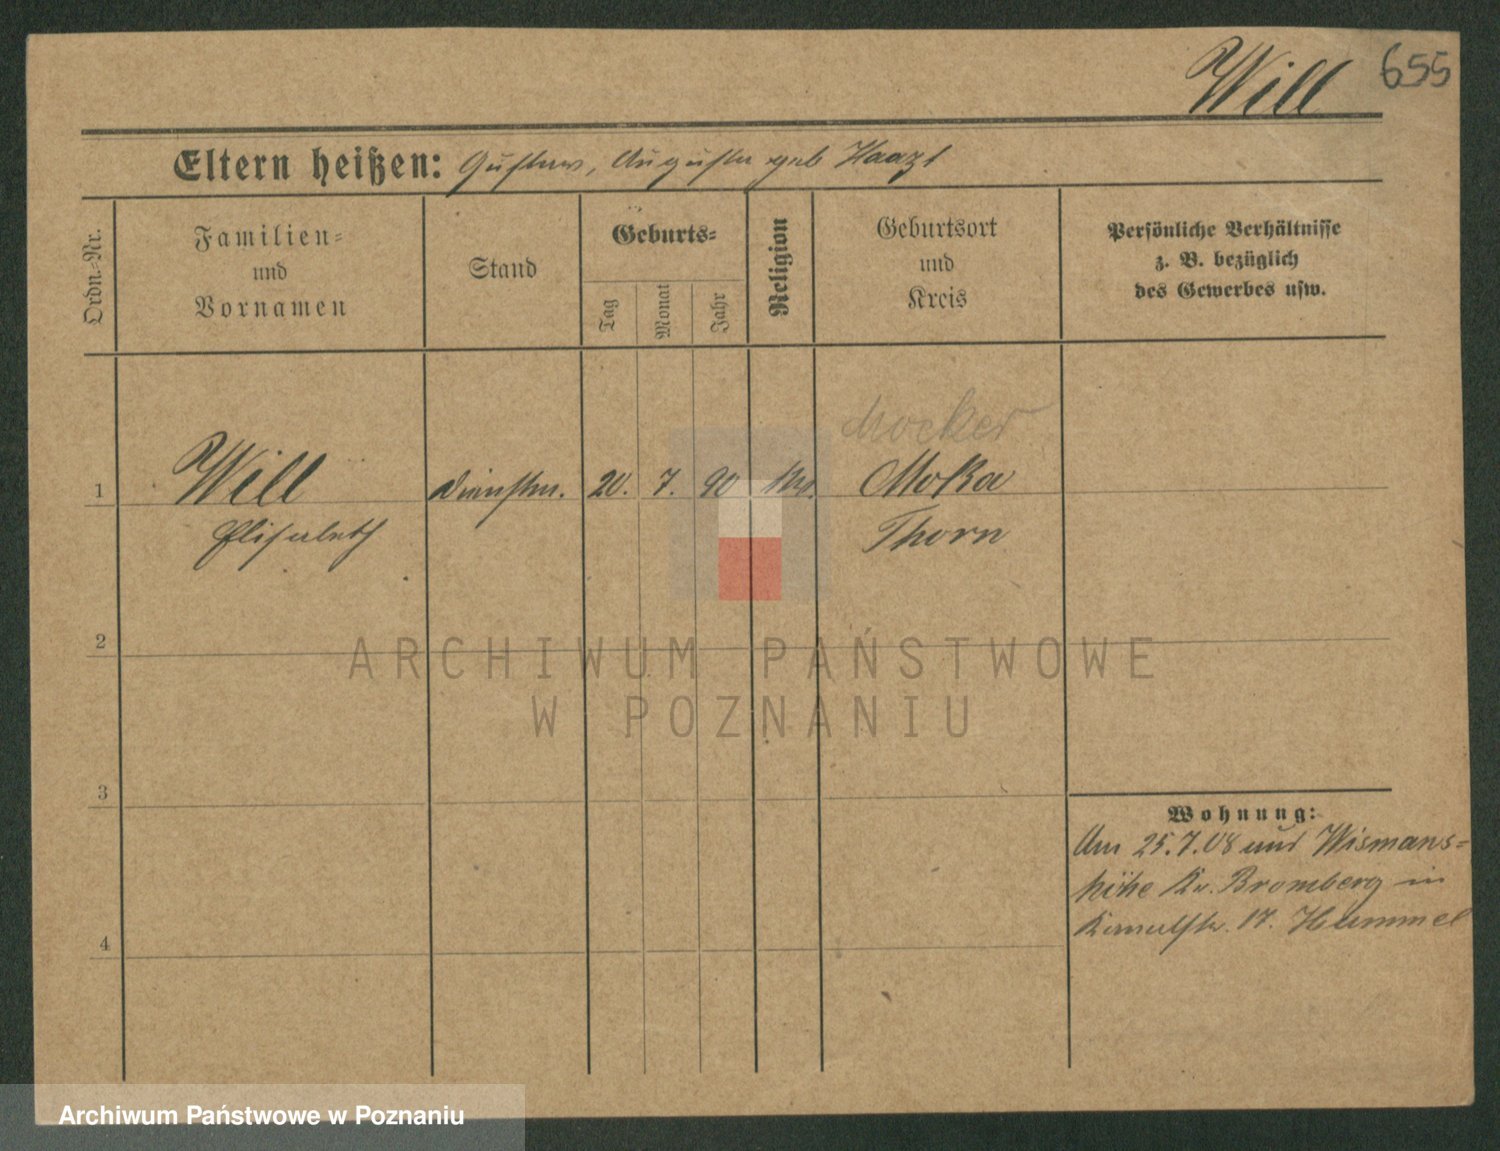 Will 655
Eltern heißen: Gustav, Auguste geb
Ordn.-Nr.
Familien-
und
Vornamen
Stand
Geburts-
Tag
Monat
Jahr
Religion
Geburtsort
und
Kreis
Persönliche Verhältnisse
z. B. bezüglich
des Gewerbes usw.
Mocker
1 Will 20. 7. 90 Moka
Elisabeth Thorn
2
ARCHIWUM PAŃSTWOWE
W POZNANIU
3
Wohnung:
Am 25.7.08 aus Wismans-
höhe Kr. Bromberg in
17. Hummel
4
Archiwum Państwowe w Poznaniu